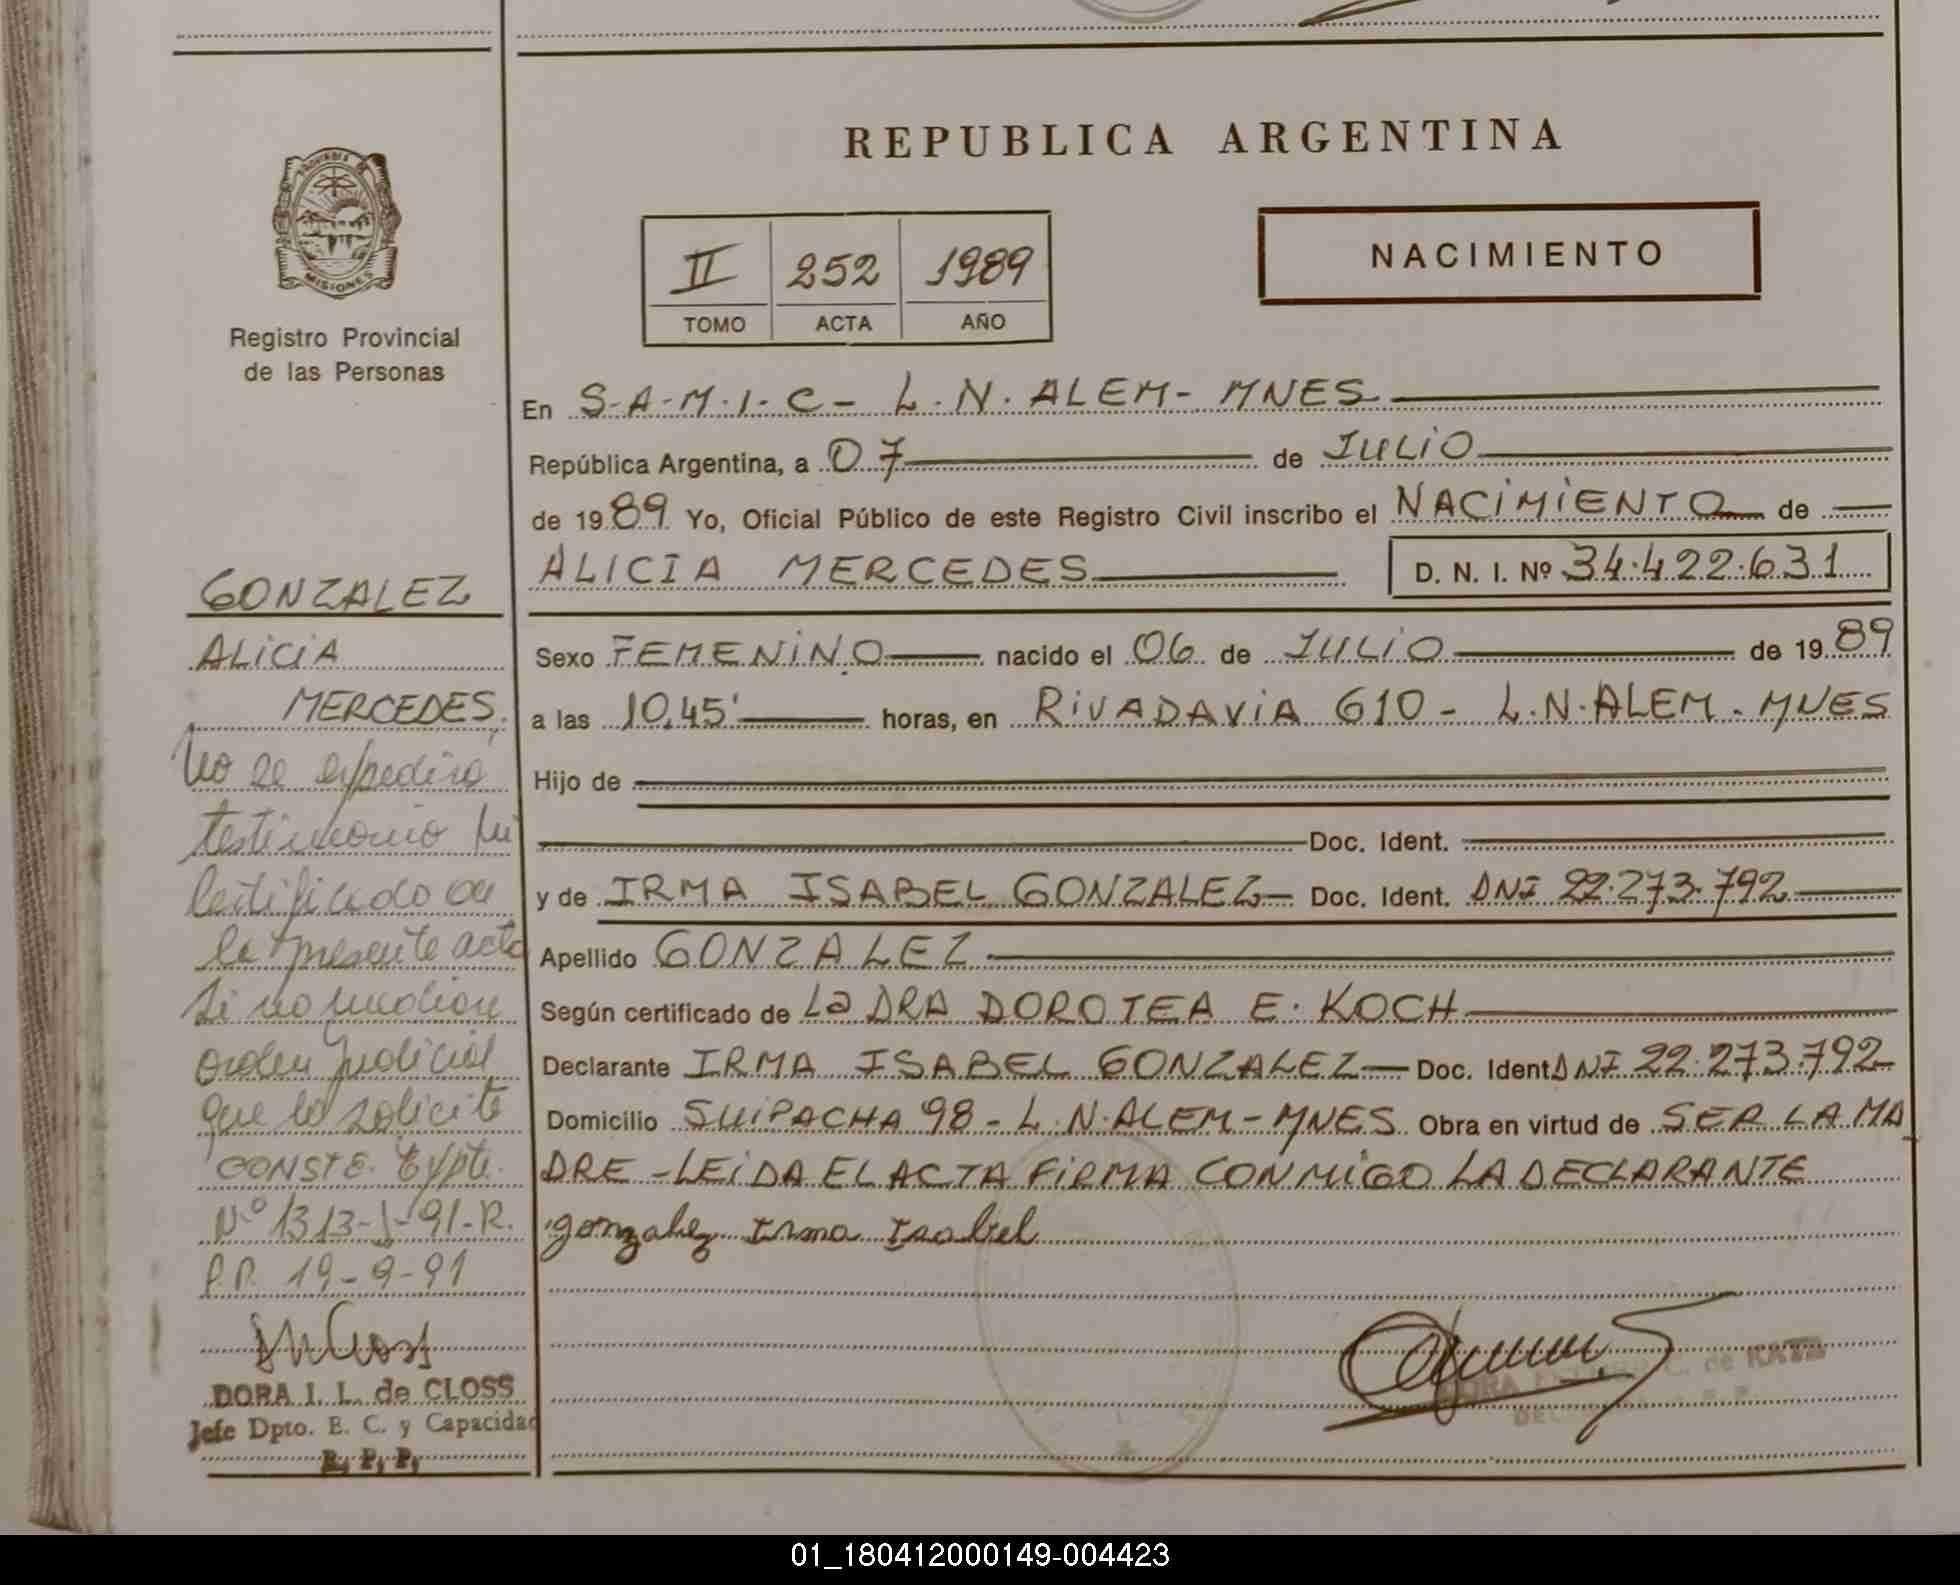 REPUBLICA ARGENTINA
PROVINCIA DE
MISIONES
Registro Provincial
de las Personas
II 252 1989
TOMO ACTA AÑO
NACIMIENTO
En S-A-M-I-C- L.N. ALEM- MNES
República Argentina, a 07 de JULIO
de 1989 Yo, Oficial Público de este Registro Civil inscribo el NACIMIENTO de
ALICIA MERCEDES D. N. I. Nº 34.422.631
Sexo FEMENINO nacido el 06 de JULIO de 1989
a las 10,45' horas, en RIVADAVIA 610 - L.N.ALEM - MNES
Hijo de
Doc. Ident.
y de IRMA ISABEL GONZALEZ- Doc. Ident. DNI 22.273.792
Apellido GONZALEZ
Según certificado de La DRA DOROTEA E. KOCH
Declarante IRMA ISABEL GONZALEZ- Doc. Ident DNI 22.273.792
Domicilio SUIPACHA 98 - L.N.ALEM-MNES Obra en virtud de SER LA MA
DRE -LEIDA EL ACTA FIRMA CONMIGO LA DECLARANTE
gonzalez Irma Isabel
C. de KATZ
GONZALEZ
ALICIA
MERCEDES
No se expedirá
testimonio ni
certificado de
la presente acta
si no mediare
orden judicial
que lo solicite
CONSTE. Expte.
Nº 1313-J-91-R.
P.P. 19-9-91
DORA I. L. de CLOSS
Jefe Dpto. E. C. y Capacidad
R. P. P.
01_180412000149-004423